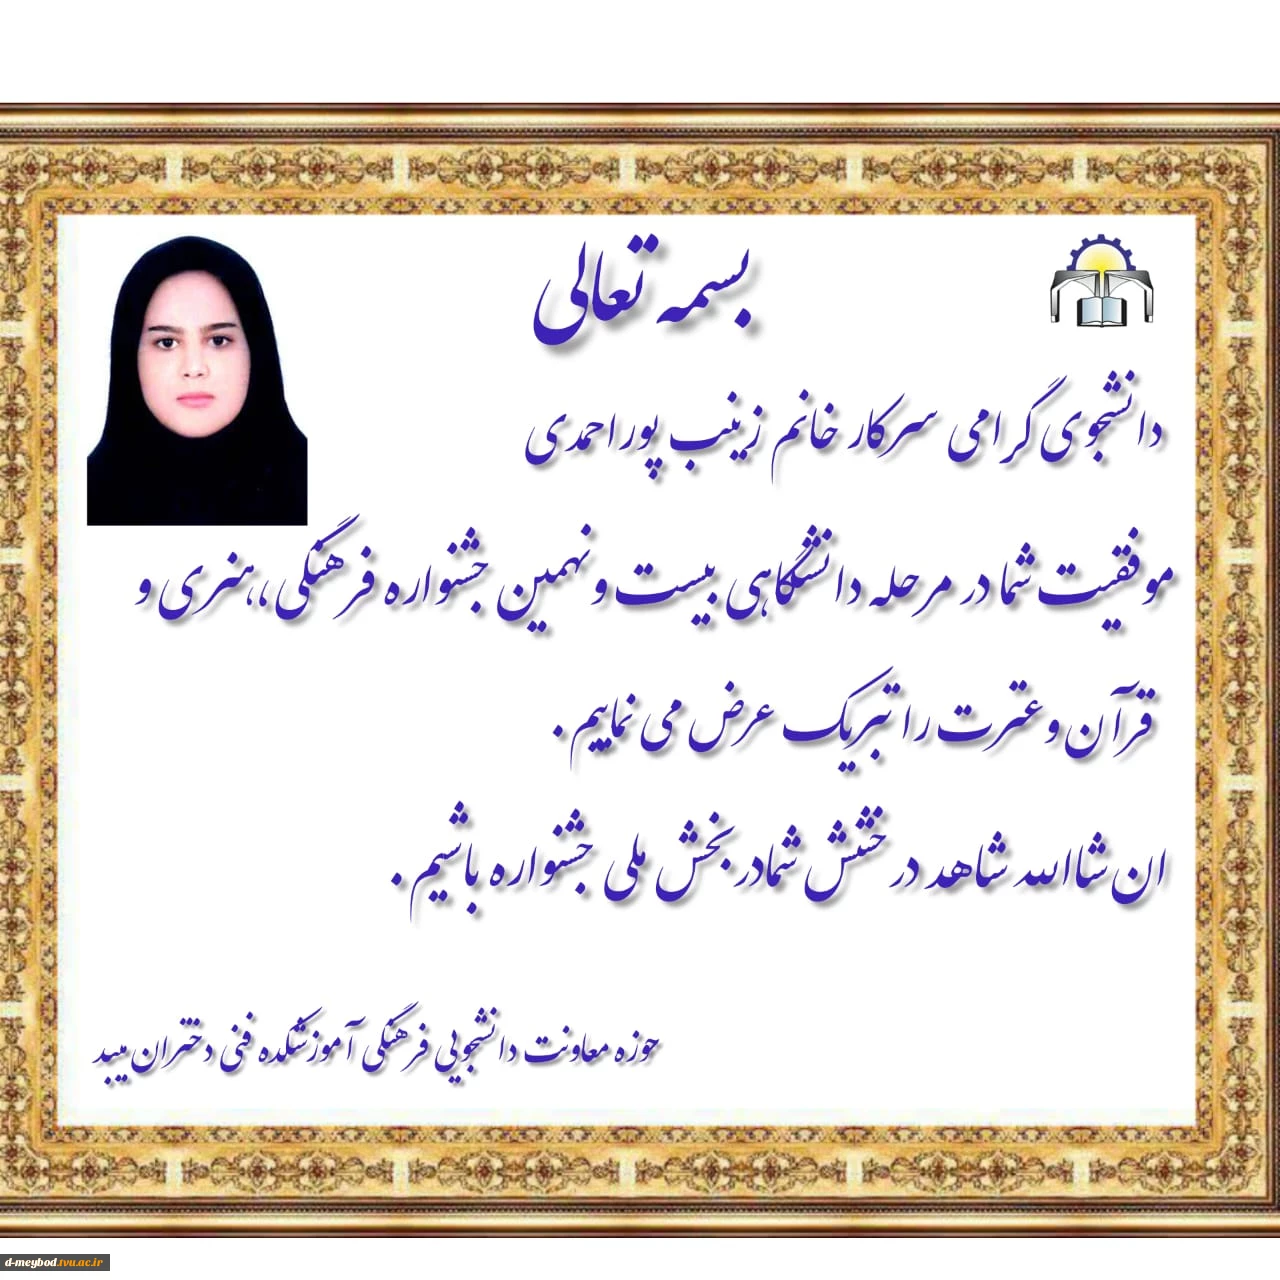 بسمه تعالی
دانشجوی گرامی سرکار خانم زینب پوراحمدی
موفقیت شما در مرحله دانشگاهی بیست و نهمین جشنواره فرهنگی ،،هنری و
قرآن و عترت را تبریک عرض می نماییم .
ان شاالله شاهد در خشش شمادر بخش ملی جشنواره باشیم .
حوزه معاونت دانشجویی فرهنگی آموزشکده فنی دختران میبد
d-meybod.tvu.ac.ir